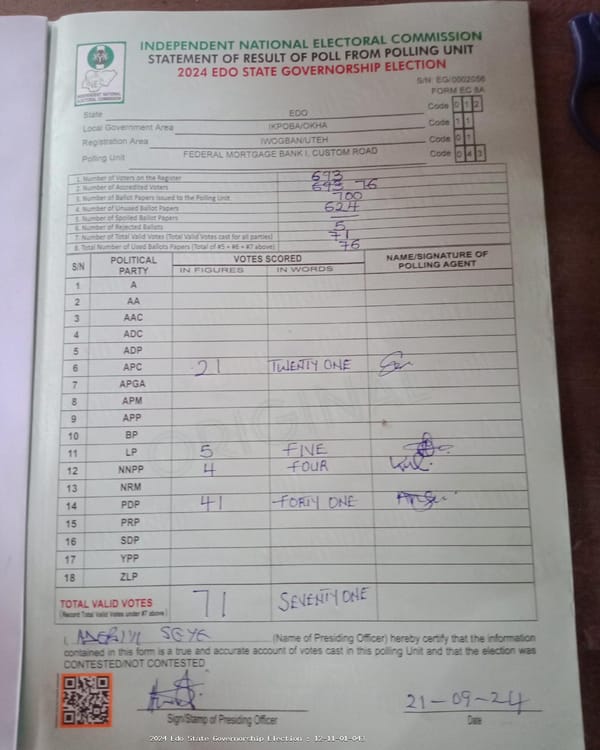 INDEPENDENT NATIONAL ELECTORAL COMMISSION
STATEMENT OF RESULT OF POLL FROM POLLING UNIT
2024 EDO STATE GOVERNORSHIP ELECTION
INDEPENDENT NATIONAL
ELECTORAL COMMISSION
S/N: EG/0002056
FORM EC 8A
State EDO Code 0 1 2
Local Government Area IKPOBA/OKHA Code 1 1
Registration Area IWOGBAN/UTEH Code 0 1
Polling Unit FEDERAL MORTGAGE BANK I, CUSTOM ROAD Code 0 4 3
1. Number of Voters on the Register 693
2. Number of Accredited Voters 76
3. Number of Ballot Papers Issued to the Polling Unit 700
4. Number of Unused Ballot Papers 624
5. Number of Spoiled Ballot Papers
6. Number of Rejected Ballots 5
7. Number of Total Valid Votes (Total Valid Votes cast for all parties) 71
8. Total Number of Used Ballots Papers (Total of #5 + #6 + #7 above) 76
S/N POLITICAL PARTY VOTES SCORED NAME/SIGNATURE OF POLLING AGENT
IN FIGURES IN WORDS
1 A
2 AA
3 AAC
4 ADC
5 ADP
6 APC 21 TWENTY ONE
7 APGA
8 APM
9 APP
10 BP
11 LP 5 FIVE
12 NNPP 4 FOUR
13 NRM
14 PDP 41 FORTY ONE
15 PRP
16 SDP
17 YPP
18 ZLP
ORIGINAL
TOTAL VALID VOTES 71 SEVENTY ONE
(Record Total Valid Votes under #7 above)
I, (Name of Presiding Officer) hereby certify that the information
contained in this form is a true and accurate account of votes cast in this polling Unit and that the election was
CONTESTED/NOT CONTESTED
21-09-24
Sign/Stamp of Presiding Officer Date
2024 Edo State Governorship Election : 12-11-01-043